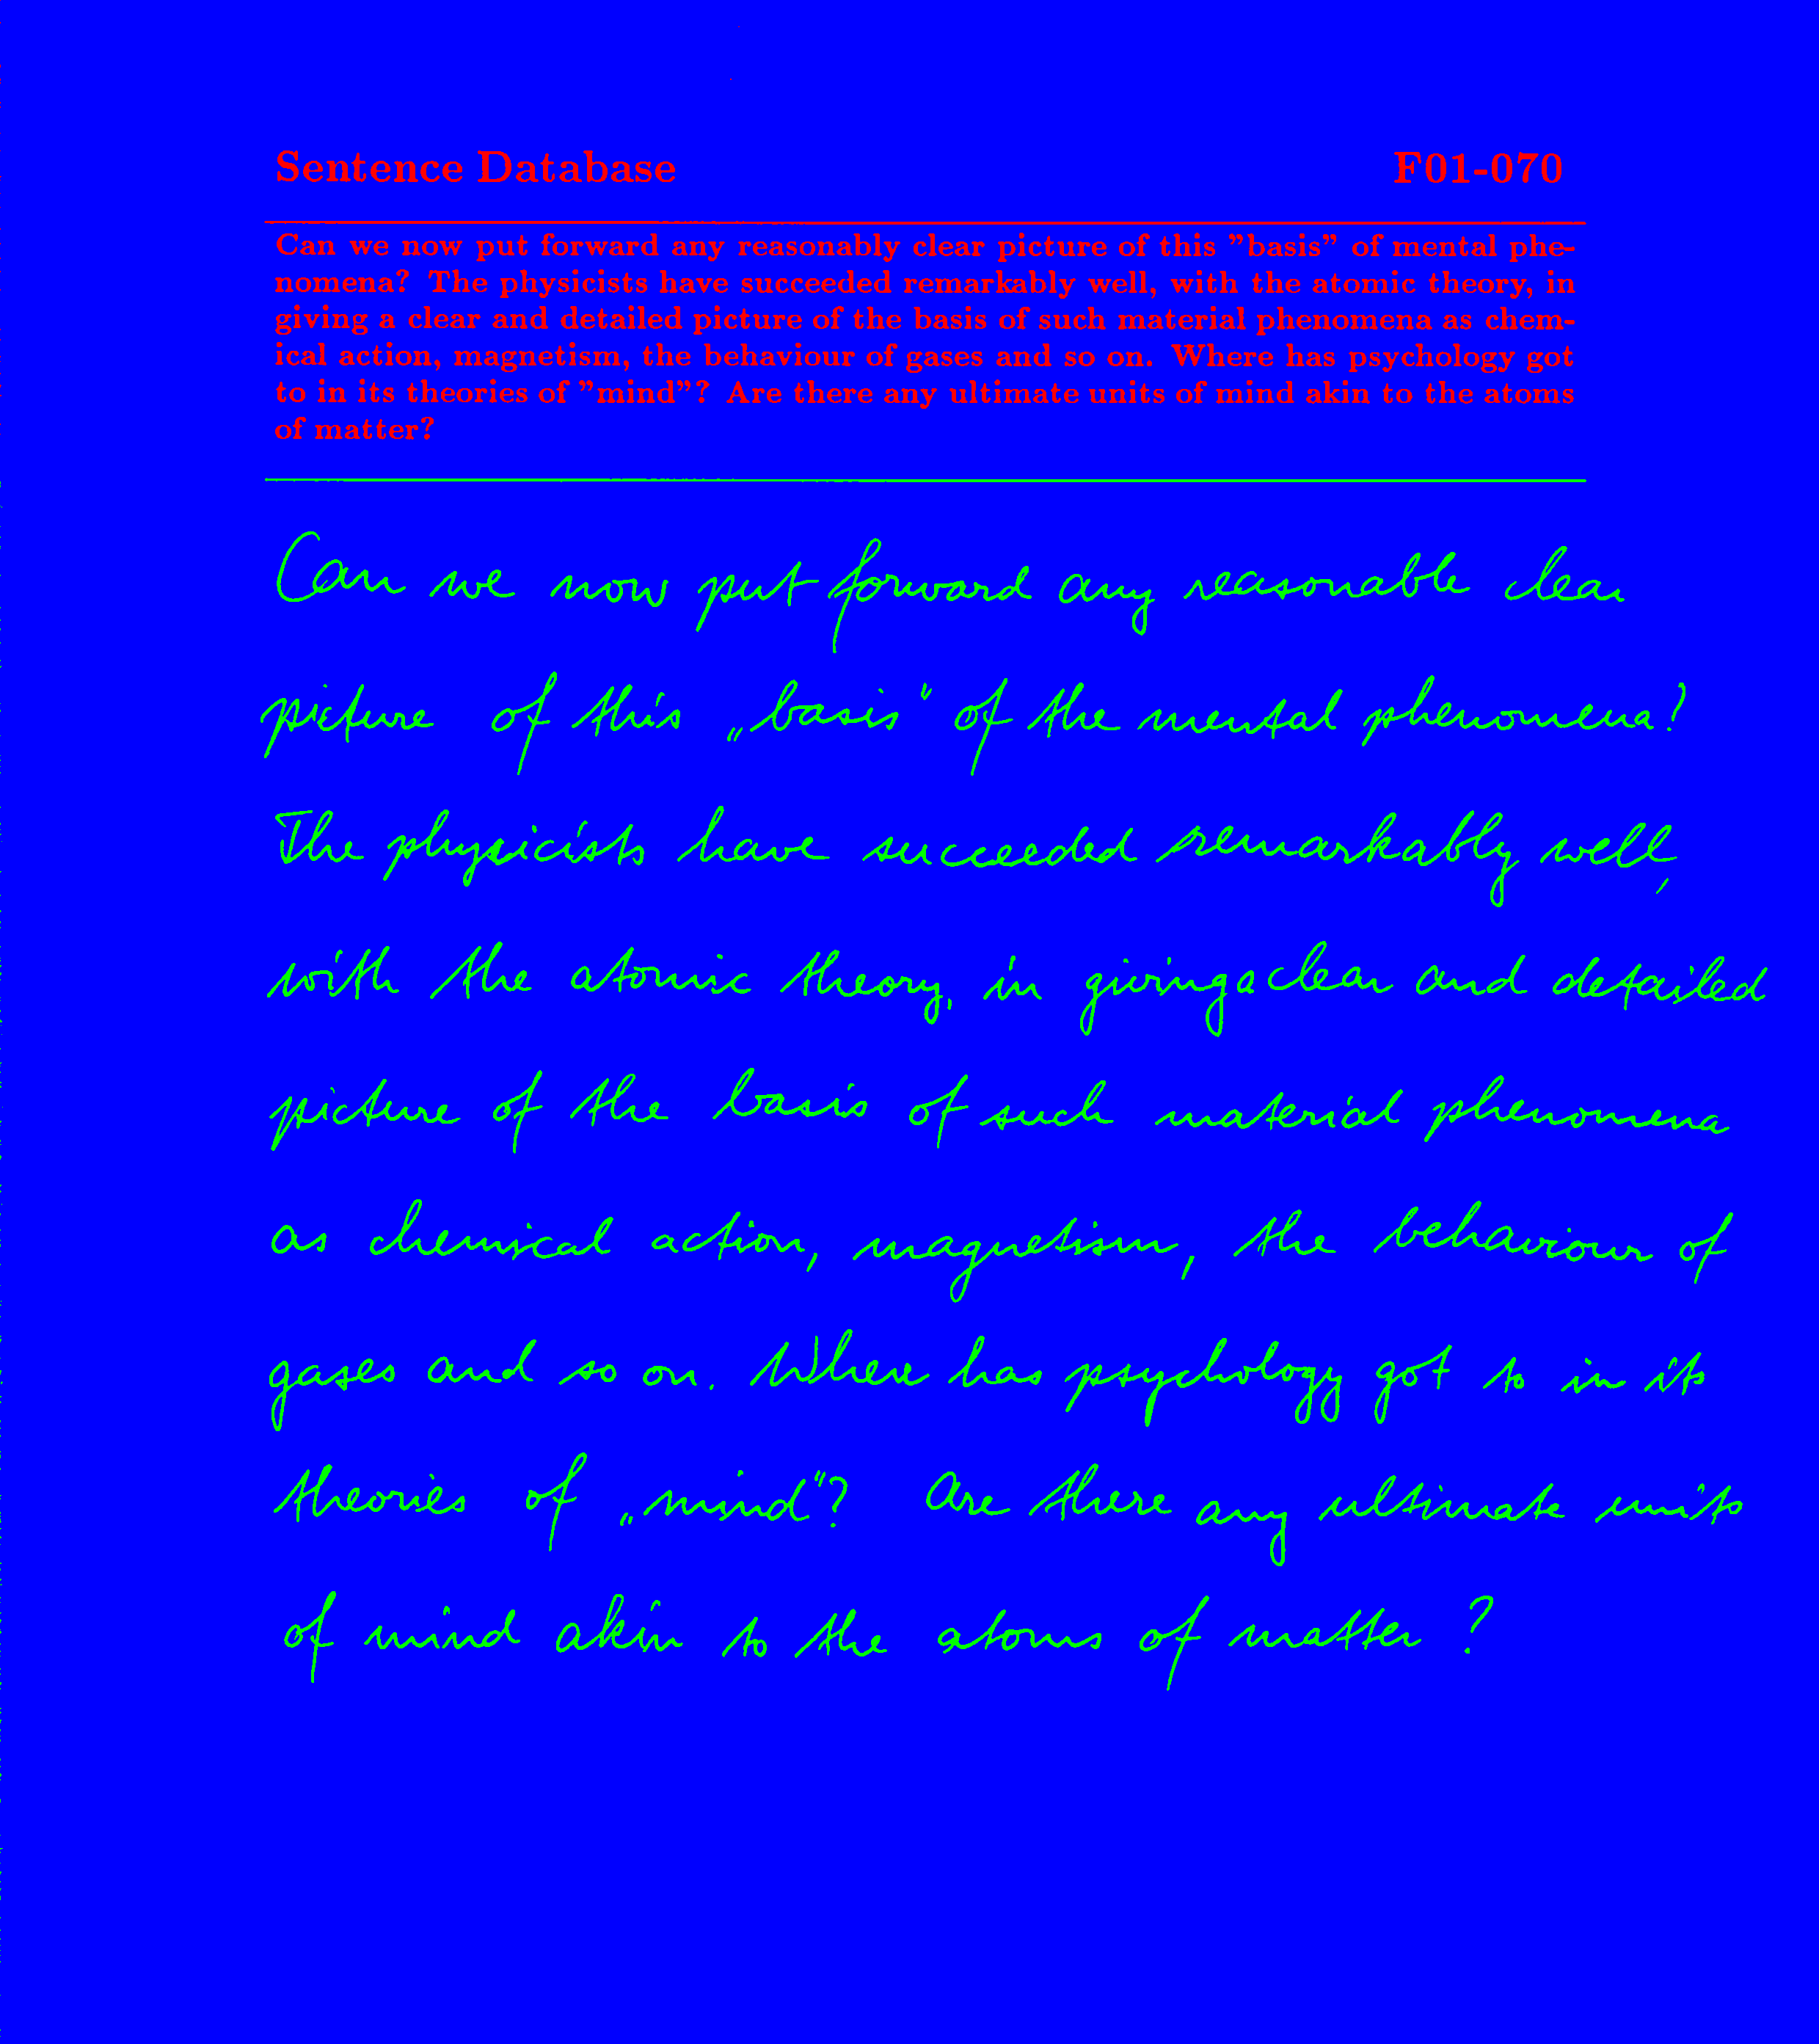 Sentence Database F01-070
Can we now put forward any reasonably clear picture of this "basis" of mental phe-
nomena? The physicists have succeeded remarkably well, with the atomic theory, in
giving a clear and detailed picture of the basis of such material phenomena as chem-
ical action, magnetism, the behaviour of gases and so on. Where has psychology got
to in its theories of "mind"? Are there any ultimate units of mind akin to the atoms
of matter?
Can we now put forward any reasonable clear
picture of this „basis“ of the mental phenomena?
The physicists have succeeded remarkably well,
with the atomic theory, in giving a clear and detailed
picture of the basis of such material phenomena
as chemical action, magnetism, the behaviour of
gases and so on. Where has psychology got to in its
theories of „mind“? Are there any ultimate units
of mind akin to the atoms of matter?